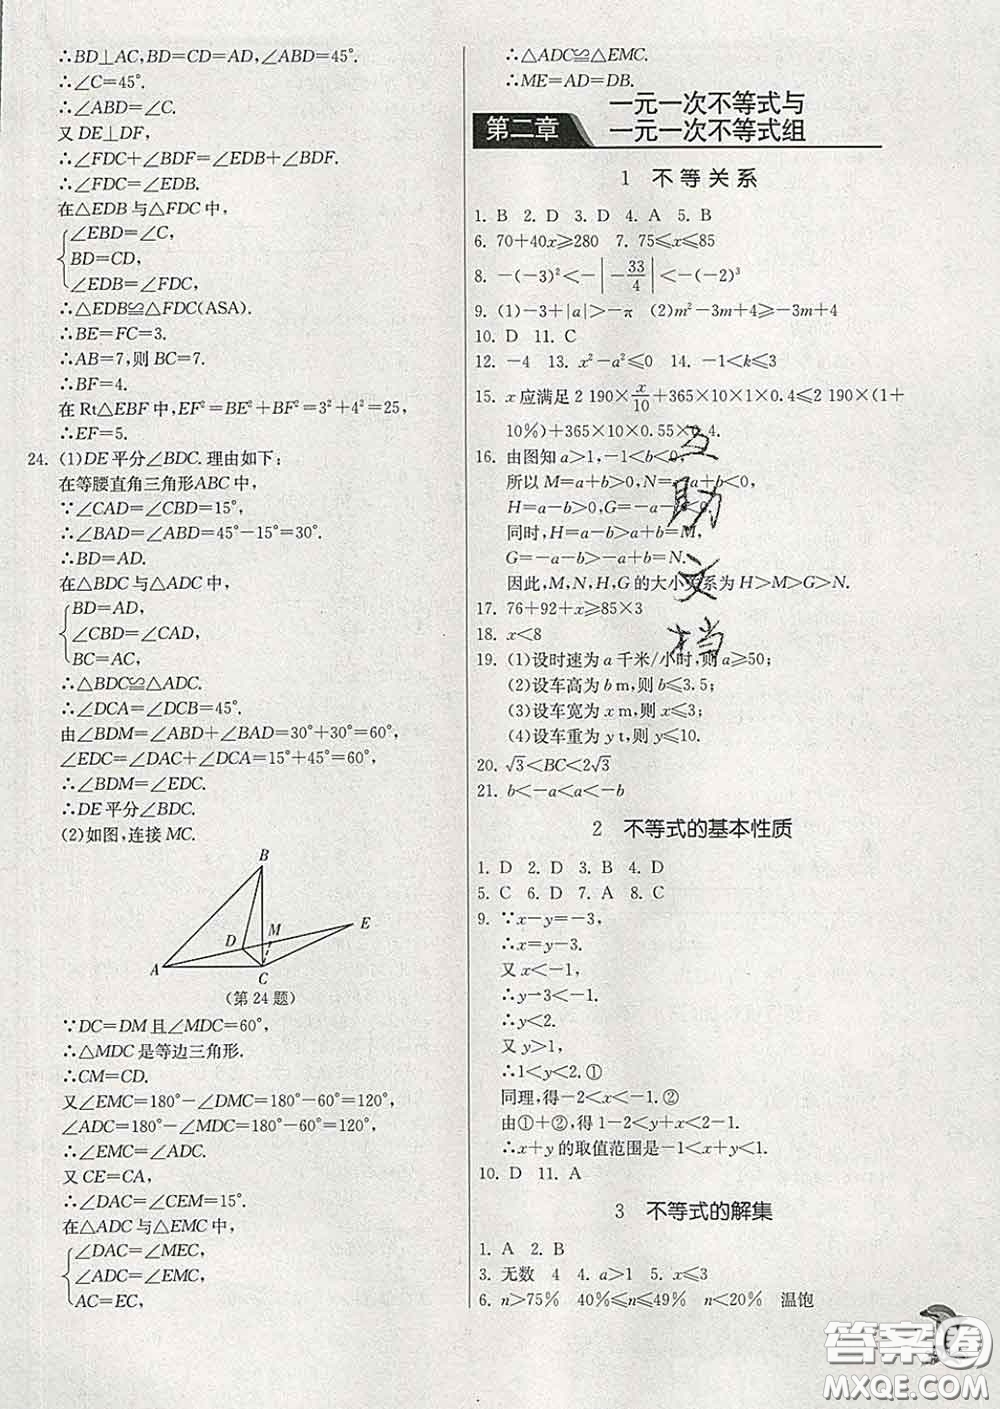 ∴BD⊥AC,BD=CD=AD,∠ABD=45°.
∴∠C=45°.
∴∠ABD=∠C.
又 DE⊥DF,
∴∠FDC+∠BDF=∠EDB+∠BDF.
∴∠FDC=∠EDB.
在△EDB 与△FDC 中,
∠EBD=∠C,
BD=CD,
∠EDB=∠FDC,
∴△EDB≌△FDC(ASA).
∴BE=FC=3.
∴AB=7,则 BC=7.
∴BF=4.
在 Rt△EBF 中,EF²=BE²+BF²=3²+4²=25,
∴EF=5.
24. (1)DE 平分∠BDC.理由如下:
在等腰直角三角形ABC 中,
∵∠CAD=∠CBD=15°,
∴∠BAD=∠ABD=45°-15°=30°.
∴BD=AD.
在△BDC 与△ADC 中,
BD=AD,
∠CBD=∠CAD,
BC=AC,
∴△BDC≌△ADC.
∴∠DCA=∠DCB=45°.
由∠BDM=∠ABD+∠BAD=30°+30°=60°,
∠EDC=∠DAC+∠DCA=15°+45°=60°,
∴∠BDM=∠EDC.
∴DE 平分∠BDC.
(2)如图,连接 MC.
B
E
M
D
A
C
(第 24 题)
∵DC=DM 且∠MDC=60°,
∴△MDC 是等边三角形.
∴CM=CD.
又∠EMC=180°-∠DMC=180°-60°=120°,
∠ADC=180°-∠MDC=180°-60°=120°,
∴∠EMC=∠ADC.
又 CE=CA,
∴∠DAC=∠CEM=15°.
在△ADC 与△EMC 中,
∠DAC=∠MEC,
∠ADC=∠EMC,
AC=EC,
∴△ADC≌△EMC.
∴ME=AD=DB.
第二章 一元一次不等式与
一元一次不等式组
1 不等关系
1. B 2. D 3. D 4. A 5. B
6. 70+40x≥280 7. 75≤x≤85
8. -(-3)²<-|-33/4|<-(-2)³
9. (1)-3+|a|>-π (2)m²-3m+4≥-3m+4
10. D 11. C
12. -4 13. x²-a²≤0 14. -1<k≤3
15. x 应满足 2 190×x/10+365×10×1×0.4≤2 190×(1+
10%)+365×10×0.55×0.4.
16. 由图知 a>1,-1<b<0,
所以 M=a+b>0,N=-a+b<0,
H=a-b>0,G=-a-b<0.
同时,H=a-b>a+b=M,
G=-a-b>-a+b=N.
因此,M,N,H,G 的大小关系为 H>M>G>N.
17. 76+92+x≥85×3
18. x<8
19. (1)设时速为 a 千米/小时,则 a≥50;
(2)设车高为 b m,则 b≤3.5;
(3)设车宽为 x m,则 x≤3;
(4)设车重为 y t,则 y≤10.
20. √3<BC<2√3
21. b<-a<a<-b
2 不等式的基本性质
1. D 2. D 3. B 4. D
5. C 6. D 7. A 8. C
9. ∵x-y=-3,
∴x=y-3.
又 x<-1,
∴y-3<-1.
∴y<2.
又 y>1,
∴1<y<2.①
同理,得-2<x<-1.②
由①+②,得 1-2<y+x<2-1.
∴x+y 的取值范围是-1<x+y<1.
10. D 11. A
3 不等式的解集
1. A 2. B
3. 无数 4 4. a>1 5. x≤3
6. n>75% 40%≤n≤49% n<20% 温饱
互
助
文
档
答案圈
MXQE.COM